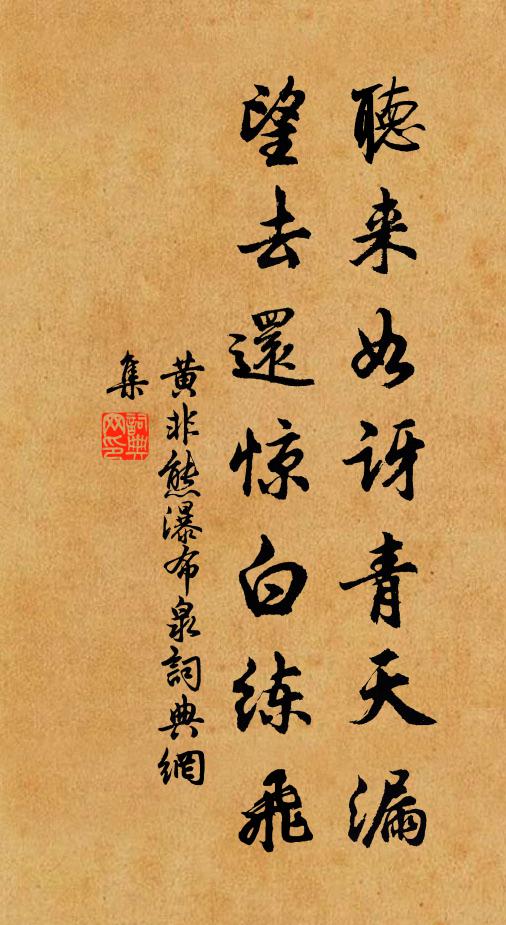 聽来如讶青天漏
望去還惊白练飛
黄非熊瀑布泉詞典網
集
詞典
网印